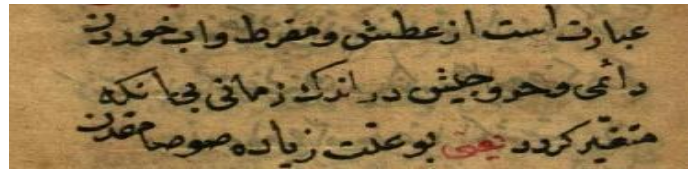 عبارت است از عطش ومفرط واب خوردن
دائمی وخروجیش در اندک زمانی بی انکه
متغیر کردد یعنی بو علت زیاده صوصامقدن